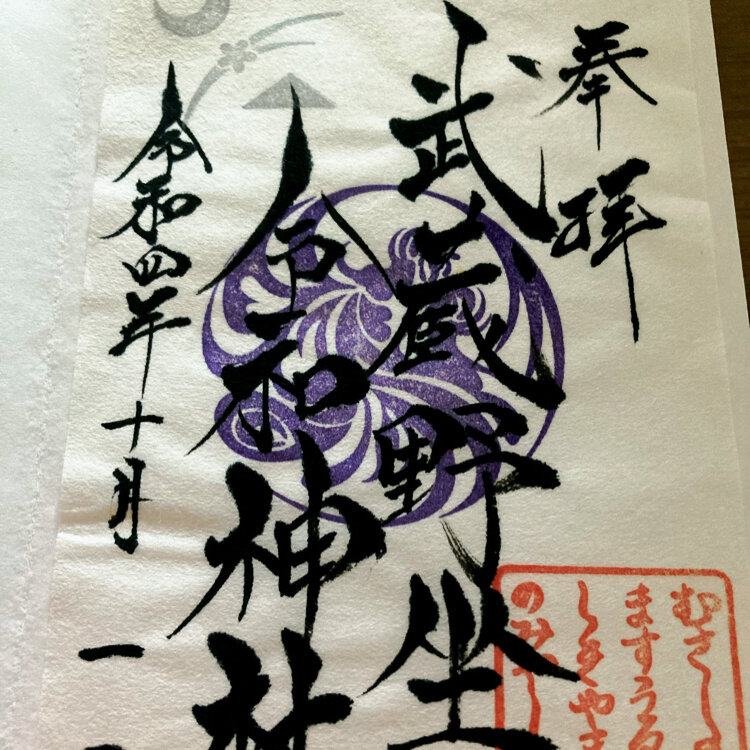 奉拝
武蔵野坐
令和神社
令和四年十月一
むさし
ますうる
しきや
のみ